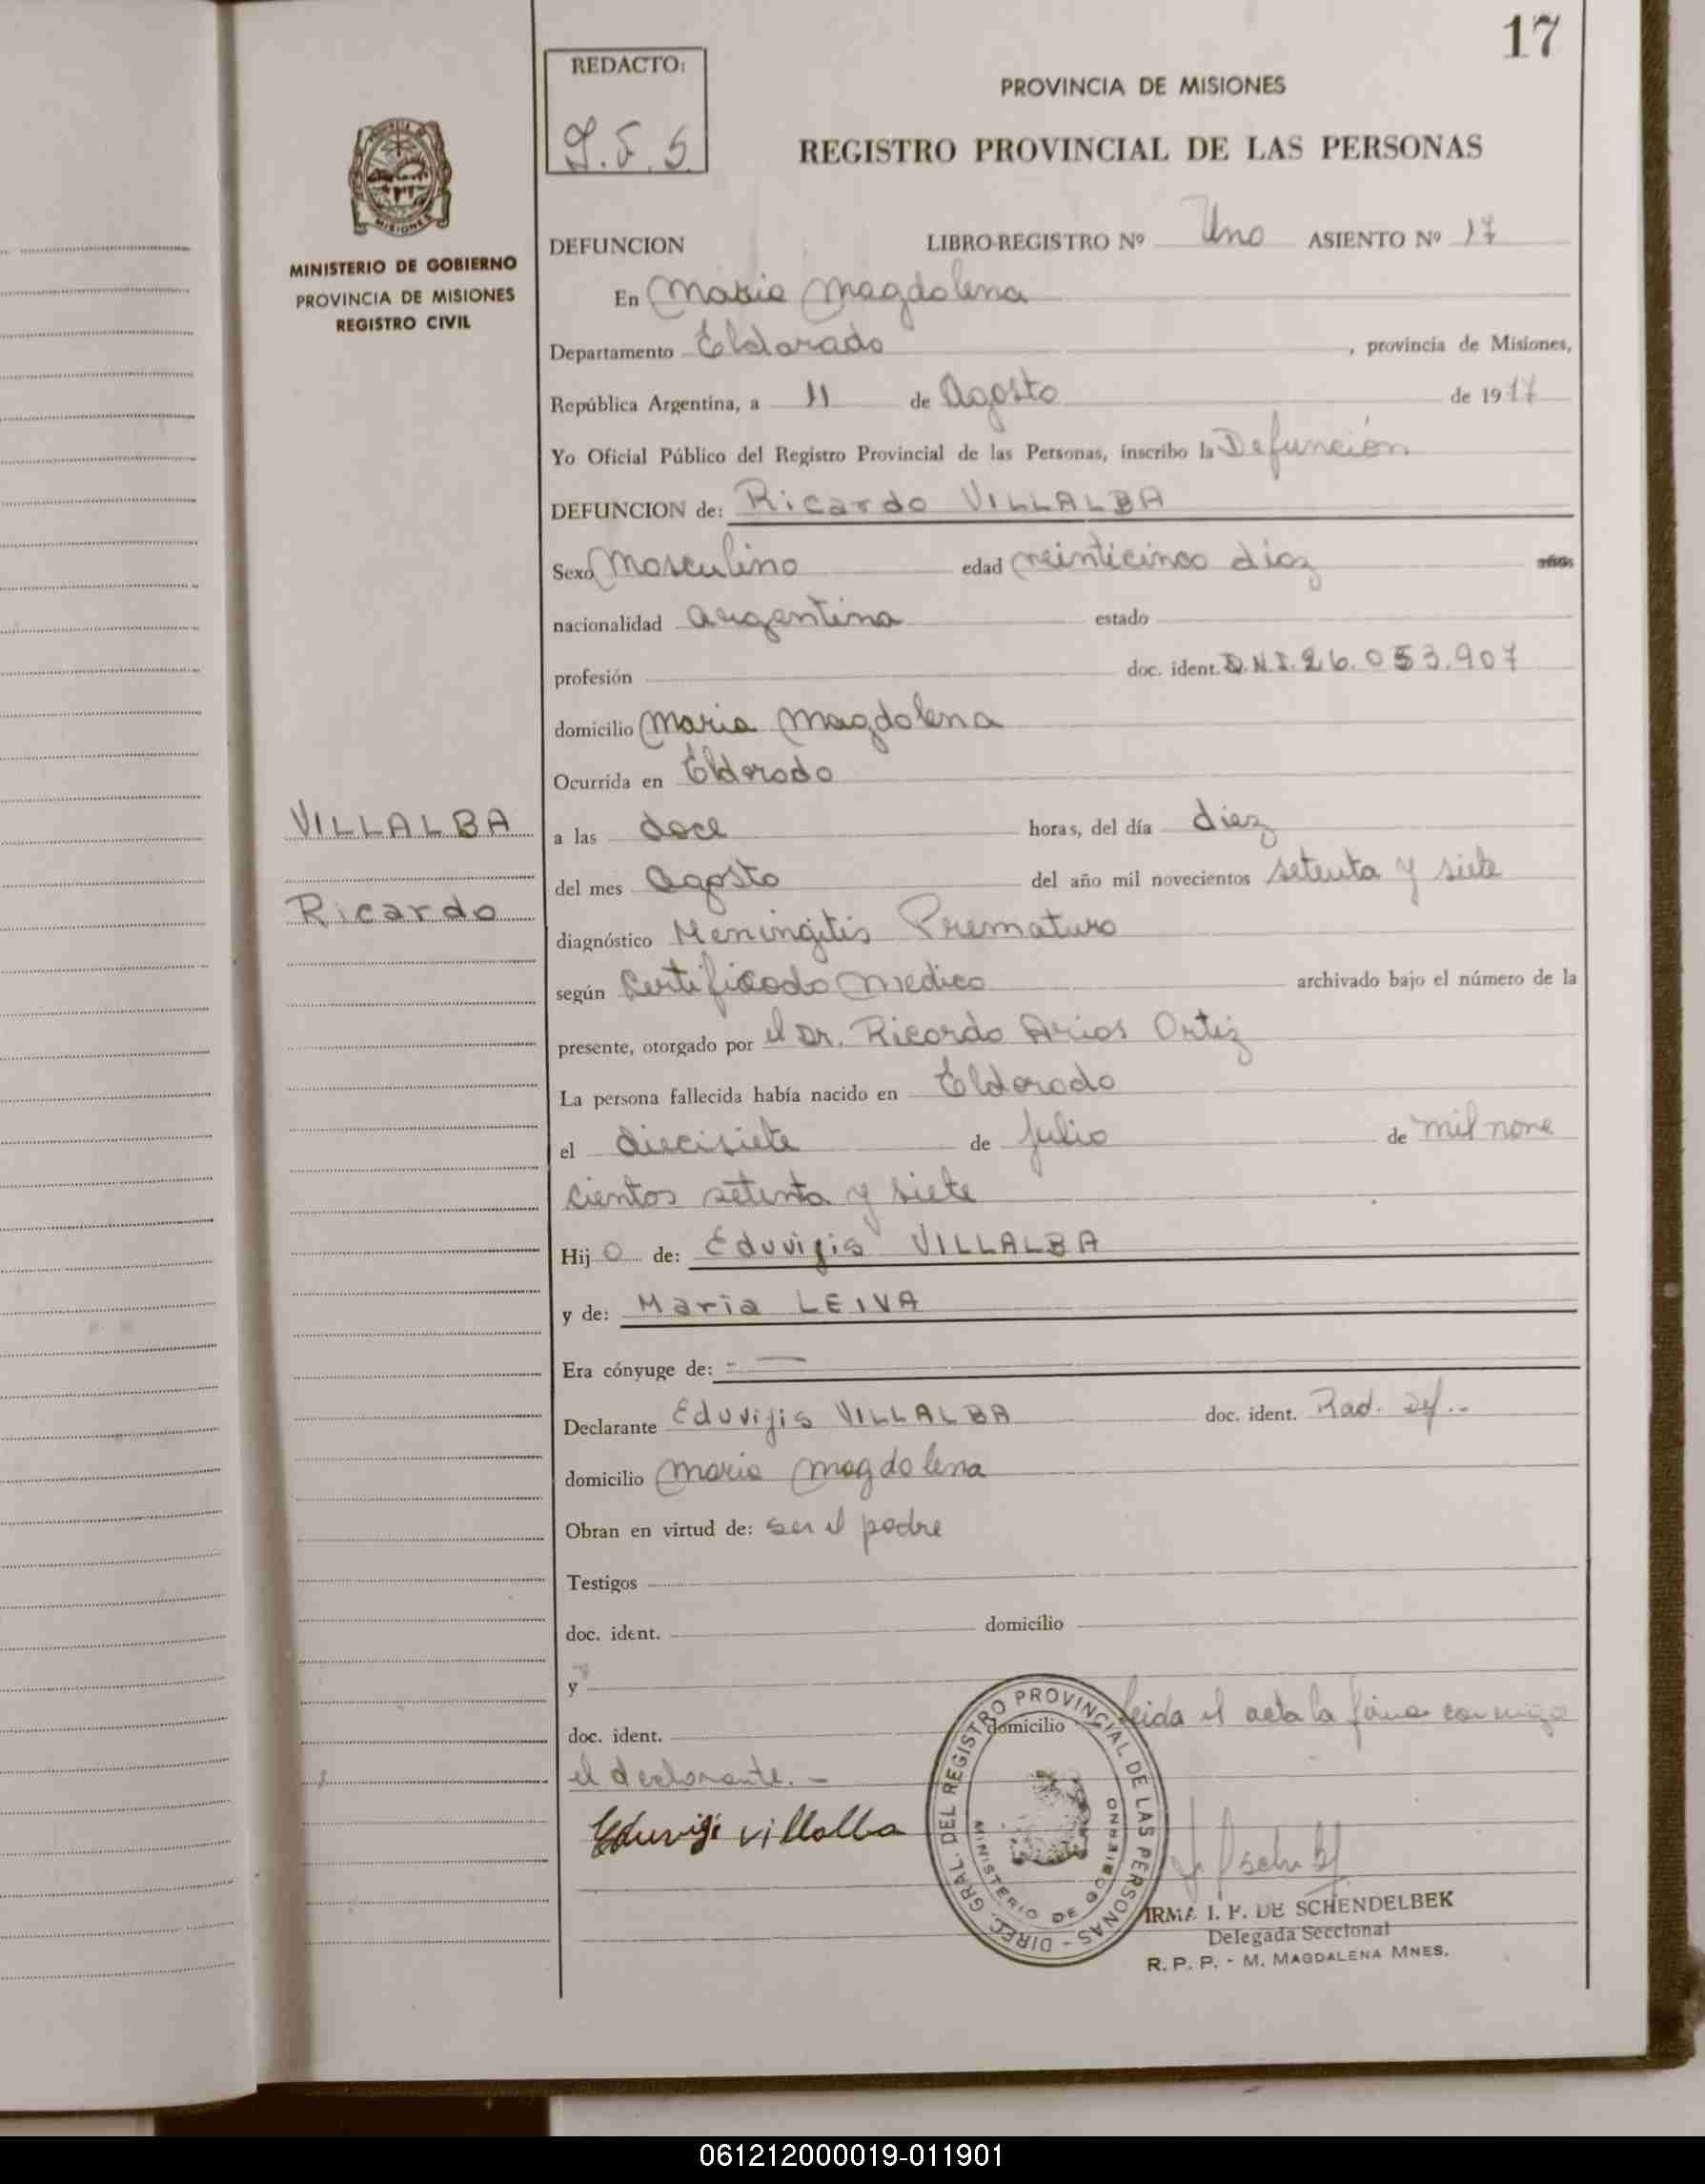 17
REDACTO:
PROVINCIA DE MISIONES
REGISTRO PROVINCIAL DE LAS PERSONAS
MISIONES
MINISTERIO DE GOBIERNO
PROVINCIA DE MISIONES
REGISTRO CIVIL
DEFUNCION LIBRO-REGISTRO Nº Uno ASIENTO Nº 17
En Maria Magdalena
Departamento Eldorado, provincia de Misiones,
República Argentina, a 11 de Agosto de 1977
Yo Oficial Público del Registro Provincial de las Personas, inscribo la Defunción
DEFUNCION de: Ricardo VILLALBA
Sexo Masculino edad veinticinco dias años
nacionalidad argentina estado
profesión doc. ident. D.N.I. 26.053.907
domicilio Maria Magdalena
Ocurrida en Eldorado
VILLALBA
Ricardo
a las doce horas, del día diez
del mes Agosto del año mil novecientos setenta y siete
diagnóstico Meningitis Prematuro
según Certificado Medico archivado bajo el número de la
presente, otorgado por el Dr. Ricardo Arias Ortiz
La persona fallecida había nacido en Eldorado
el diecisiete de Julio de mil nove
cientos setenta y siete
Hijo de: Eduvigis VILLALBA
y de: Maria LEIVA
Era cónyuge de: - —
Declarante Eduvijis VILLALBA doc. ident.
domicilio Maria Magdalena
Obran en virtud de: ser el padre
Testigos
doc. ident. domicilio
y
doc. ident. domicilio Leida el acta la firma conmigo
el declarante. -
Eduvigi villalba
DIREC. GRAL. DEL REGISTRO PROVINCIAL DE LAS PERSONAS -
MINISTERIO DE GOBIERNO
IRMA I. P. DE SCHENDELBEK
Delegada Seccional
R. P. P. - M. MAGDALENA MNES.
061212000019-011901